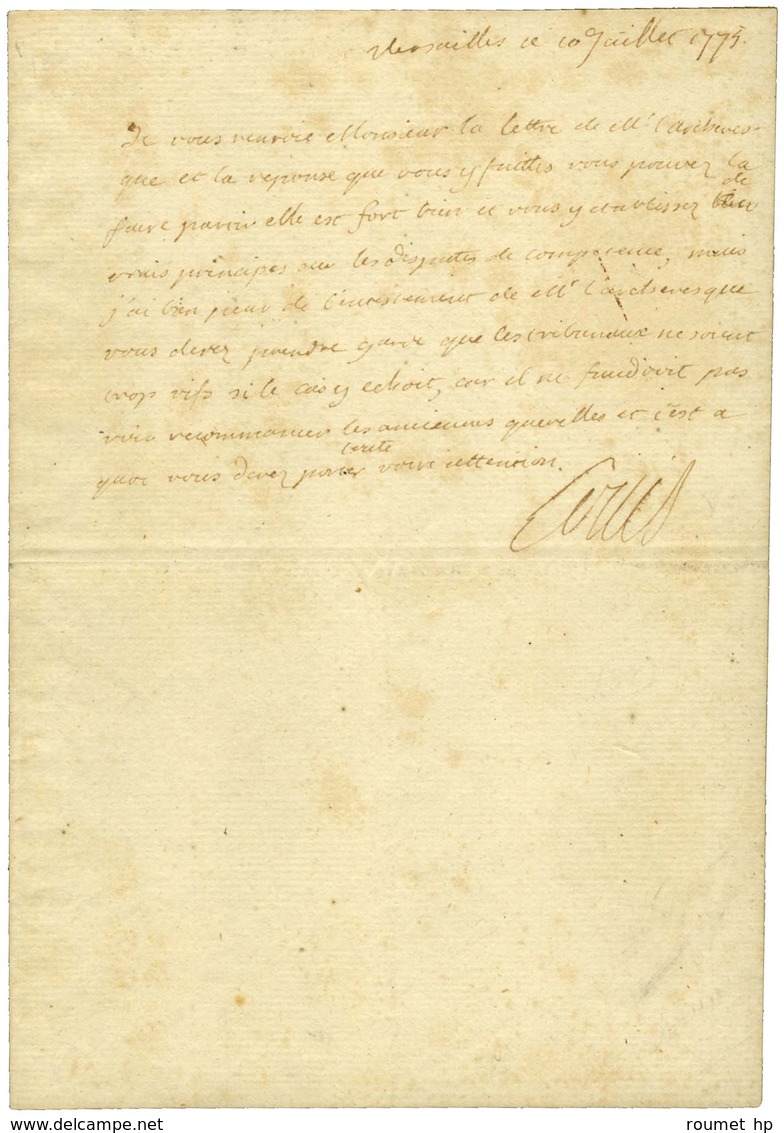 Versailles ce 10 Juillet 1775.
Je vous renvoie Monsieur la lettre de Mr. l'archeves-
que et la reponse que vous y faittes vous pouvez la
faire partir elle est fort bien et vous y etablissez de
vrais principes sur les disputes de competence, mais
j'ai bien peur de l'entestement de Mr. l'archevesque
vous devez prendre garde que les tribunaux ne soient
trop vifs si le cas y echoit, car il ne faudroit pas
voir recommancer les anciennes querelles et c'est a
quoi vous devez porter toute votre attention.
Louis
roumet hp